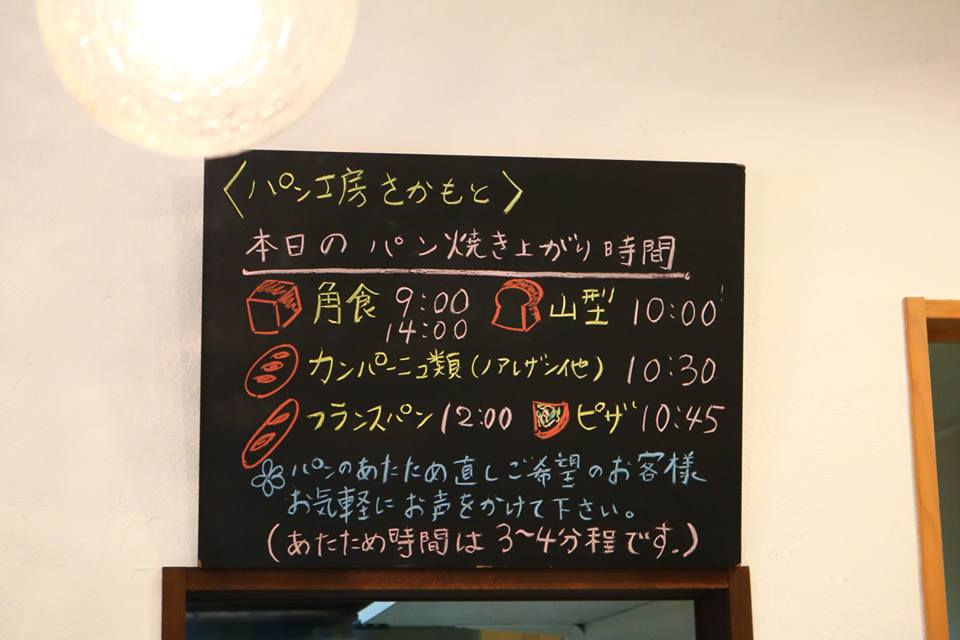 〈パン工房さかもと〉
本日のパン焼き上がり時間
角食 9:00 山型 10:00
14:00
カンパーニュ類(ノアレザン他) 10:30
フランスパン 12:00 ピザ 10:45
パンのあたため直しご希望のお客様
お気軽にお声をかけて下さい。
(あたため時間は3〜4分程です。)